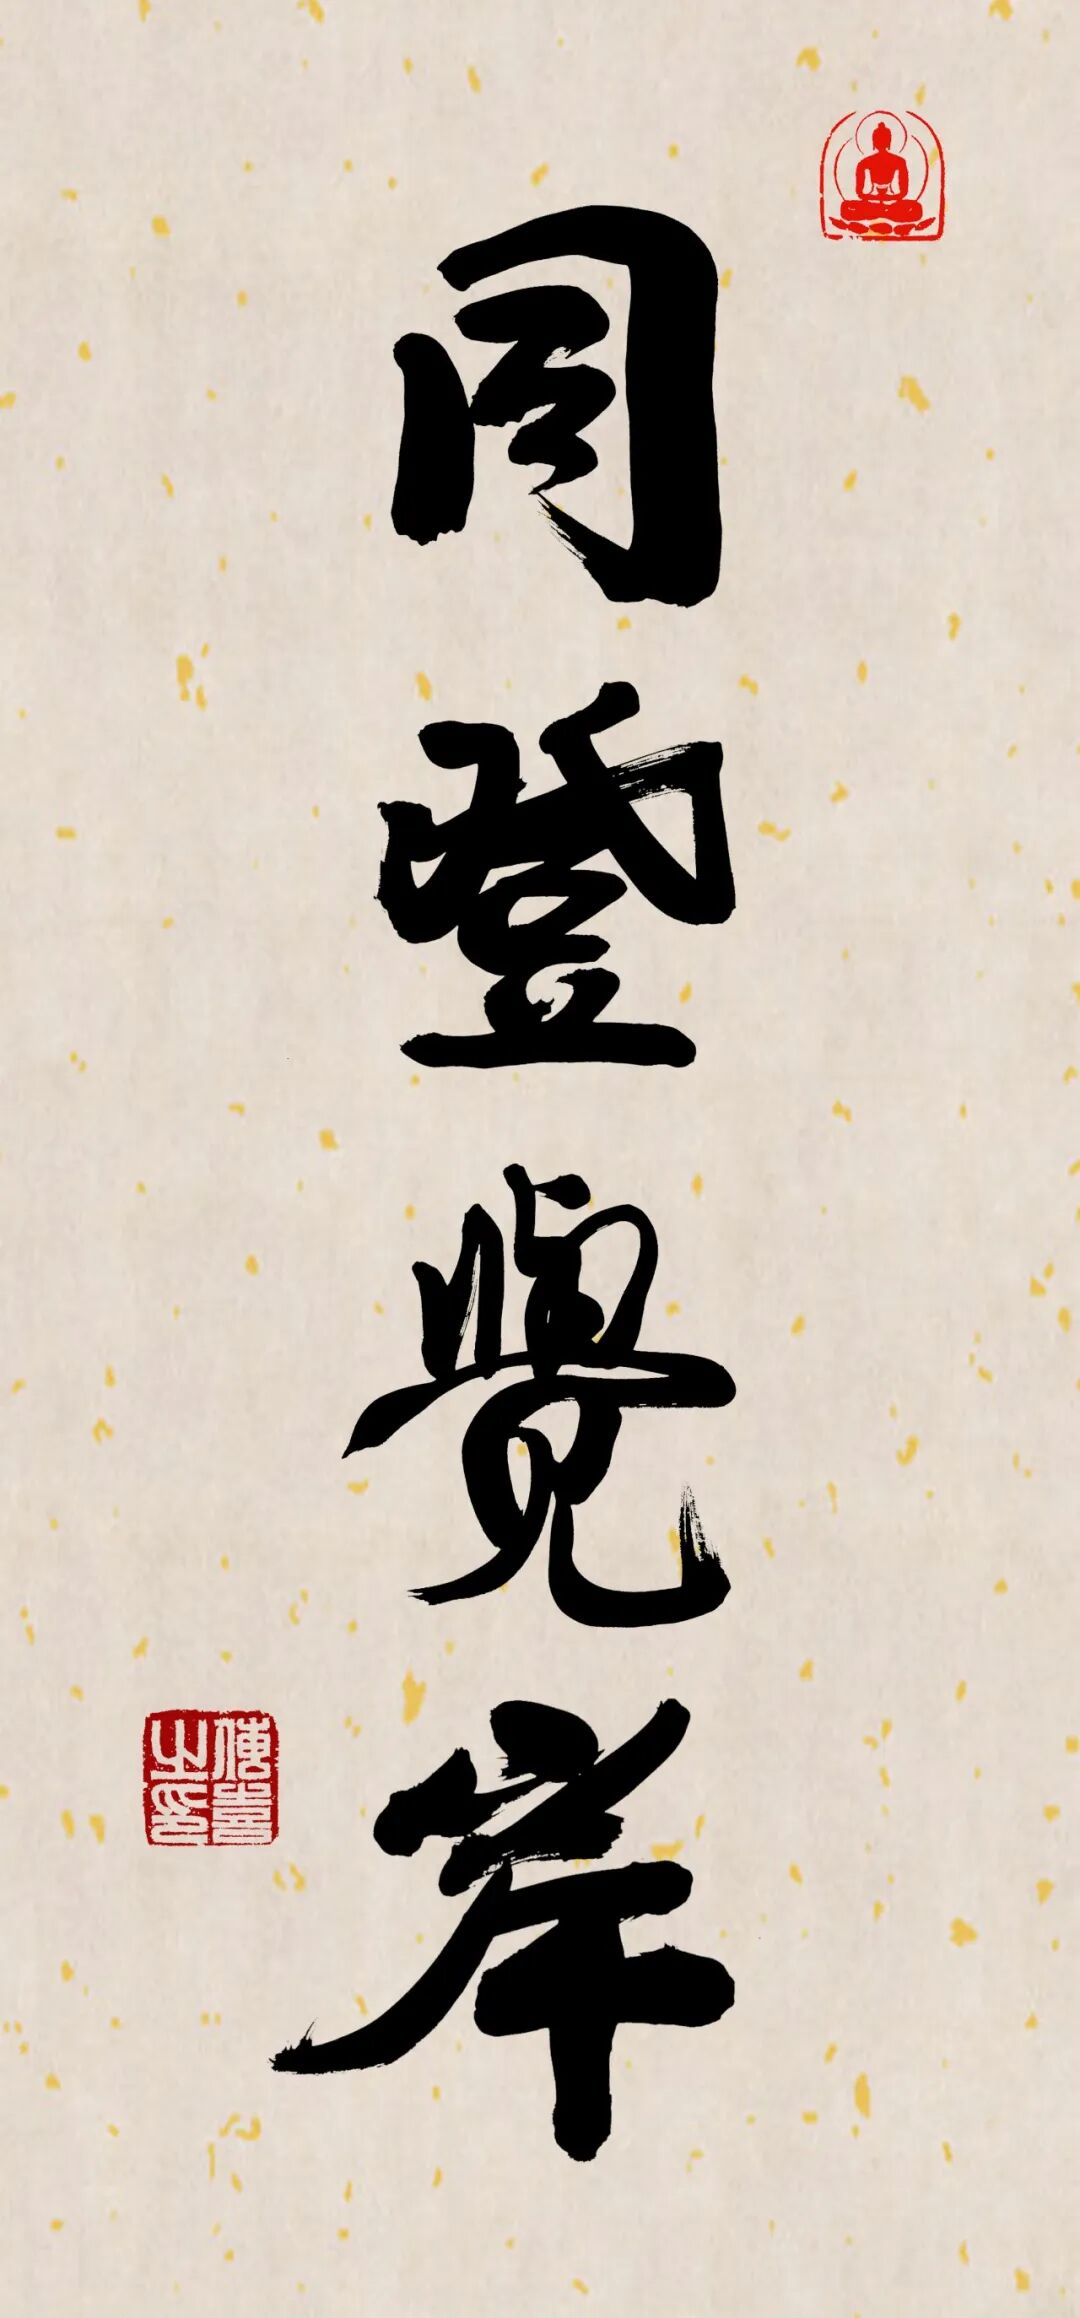 同登覺岸